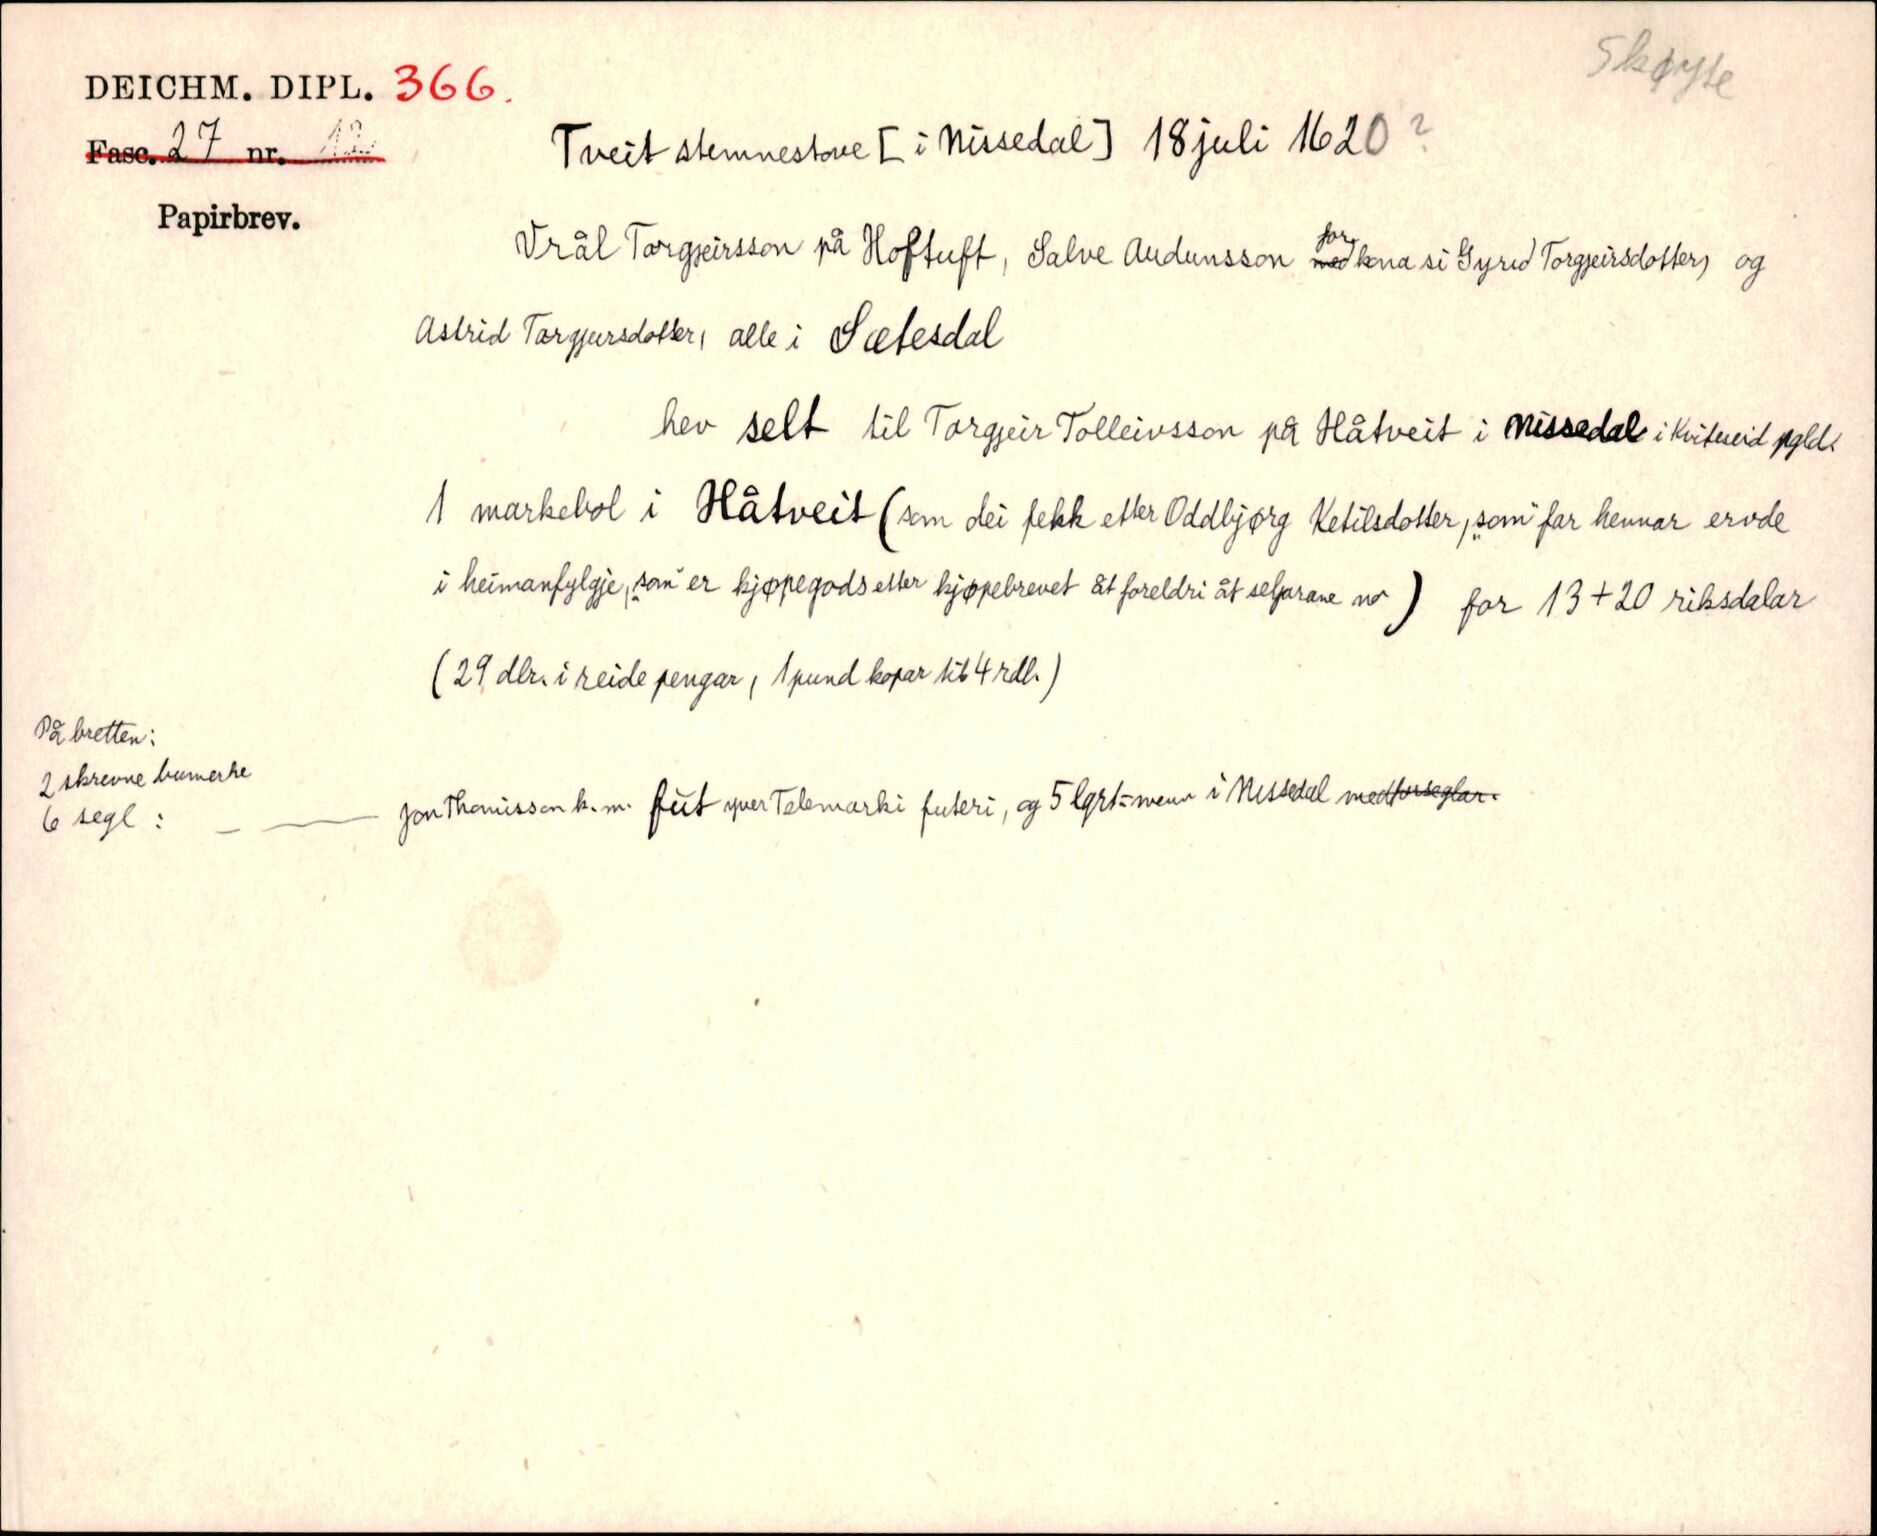 Skøyte
DEICHM. DIPL. 366.
Fasc. 27 nr. 12
Papirbrev.
Tveit stemnestove [i Nissedal] 18 juli 1620?
Vrål Torgjeirsson på Hoftuft, Salve Audunsson med for kona si Gyrid Torgjeirsdotter, og
Astrid Torgjeirsdotter, alle i Sætesdal
hev selt til Torgjeir Tolleivsson på Håtveit i Nissedal i Kviteseid pgld.
1 markebol i Håtveit (som dei fekk etter Oddbjørg Ketilsdotter, "som" far hennar ervde
i heimanfylgje, "som" er kjøpegods etter kjøpebrevet åt foreldri åt seljarane no) for 13 + 20 riksdalar
(29 dlr. i reide pengar, 1 pund kopar til 4 rdl.)
På bretten:
2 skrevne bumerke
6 segl: Jon Thomisson k. m. fut yver Telemarki futeri, og 5 lgrt=menn i Nissedal medforseglar.